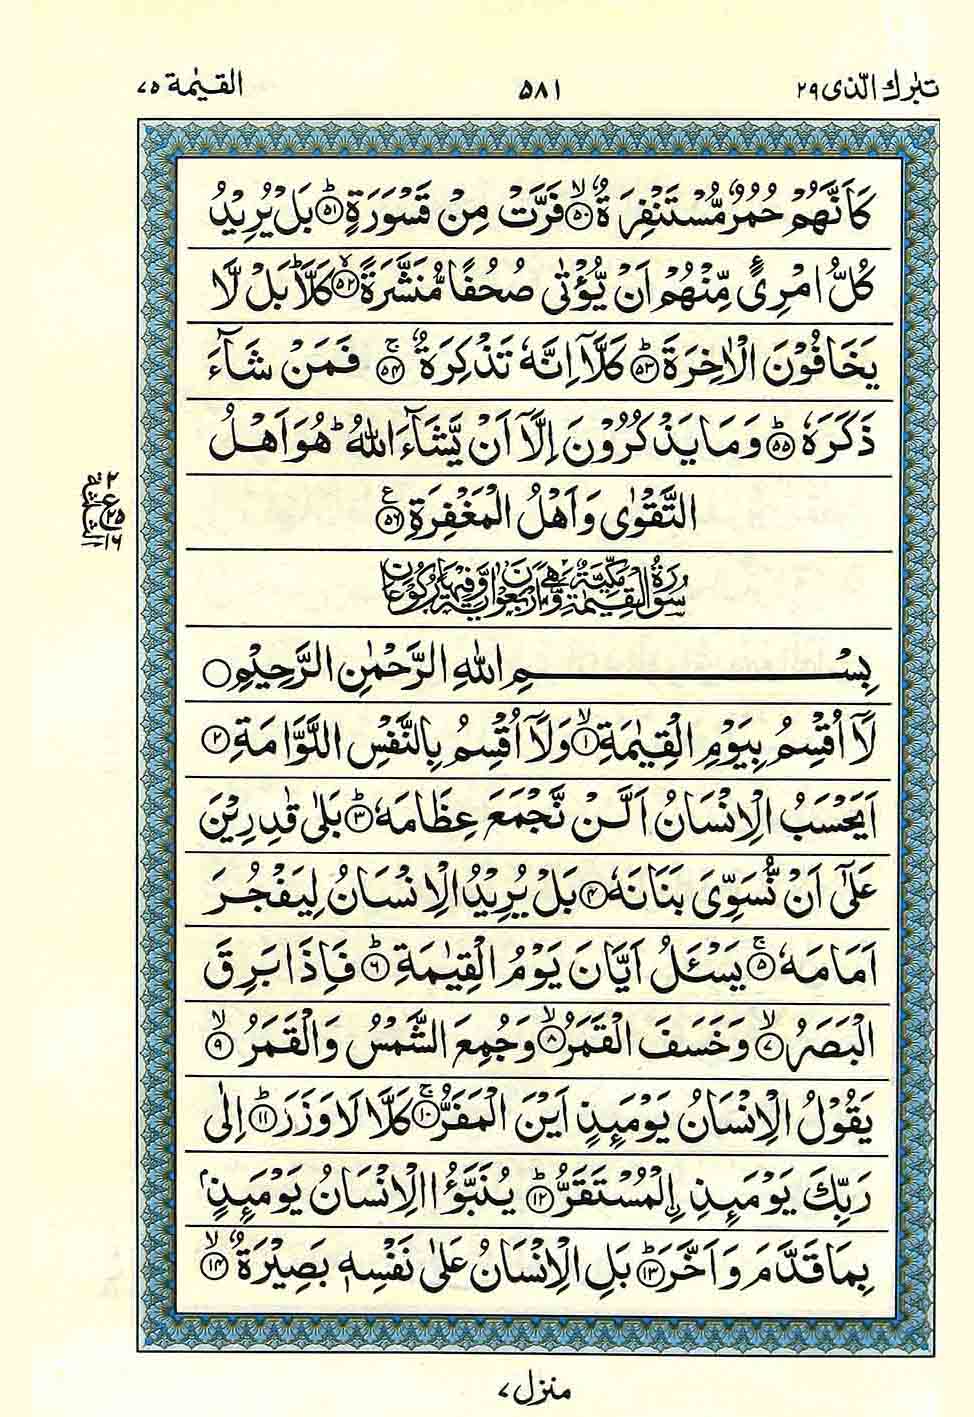 تبٰرك الّذی ۲۹
۵۸۱
القیٰمة ۷۵
كَاَنَّهُمْ حُمُرٌ مُّسْتَنْفِرَةٌ ۙ﴿۵۰﴾ فَرَّتْ مِنْ قَسْوَرَةٍ ؕ﴿۵۱﴾ بَلْ یُرِیْدُ
كُلُّ امْرِئٍ مِّنْهُمْ اَنْ یُّؤْتٰی صُحُفًا مُّنَشَّرَةً ۙ﴿۵۲﴾ كَلَّا ؕ بَلْ لَّا
یَخَافُوْنَ الْاٰخِرَةَ ؕ﴿۵۳﴾ كَلَّاۤ اِنَّهٗ تَذْكِرَةٌ ۚ﴿۵۴﴾ فَمَنْ شَآءَ
ذَكَرَهٗ ؕ﴿۵۵﴾ وَمَا یَذْكُرُوْنَ اِلَّاۤ اَنْ یَّشَآءَ اللّٰهُ ؕ هُوَ اَهْلُ
التَّقْوٰی وَاَهْلُ الْمَغْفِرَةِ ﴿۵۶﴾
ع
۲
۲۵
۱۶
سُوْرَةُ الْقِیٰمَةِ مَكِّیَّةٌ وَّهِیَ اَرْبَعُوْنَ اٰیَةً وَّفِیْهَا رُكُوْعَانِ
بِسْمِ اللّٰهِ الرَّحْمٰنِ الرَّحِیْمِ ○
لَاۤ اُقْسِمُ بِیَوْمِ الْقِیٰمَةِ ۙ﴿۱﴾ وَلَاۤ اُقْسِمُ بِالنَّفْسِ اللَّوَّامَةِ ﴿۲﴾
اَیَحْسَبُ الْاِنْسَانُ اَلَّنْ نَّجْمَعَ عِظَامَهٗ ؕ﴿۳﴾ بَلٰی قٰدِرِیْنَ
عَلٰۤی اَنْ نُّسَوِّیَ بَنَانَهٗ ﴿۴﴾ بَلْ یُرِیْدُ الْاِنْسَانُ لِیَفْجُرَ
اَمَامَهٗ ۚ﴿۵﴾ یَسْـَٔلُ اَیَّانَ یَوْمُ الْقِیٰمَةِ ؕ﴿۶﴾ فَاِذَا بَرِقَ
الْبَصَرُ ۙ﴿۷﴾ وَخَسَفَ الْقَمَرُ ۙ﴿۸﴾ وَجُمِعَ الشَّمْسُ وَالْقَمَرُ ۙ﴿۹﴾
یَقُوْلُ الْاِنْسَانُ یَوْمَىِٕذٍ اَیْنَ الْمَفَرُّ ۚ﴿۱۰﴾ كَلَّا لَا وَزَرَ ؕ﴿۱۱﴾ اِلٰی
رَبِّكَ یَوْمَىِٕذِ ۣالْمُسْتَقَرُّ ؕ﴿۱۲﴾ یُنَبَّؤُا الْاِنْسَانُ یَوْمَىِٕذٍۭ
بِمَا قَدَّمَ وَاَخَّرَ ؕ﴿۱۳﴾ بَلِ الْاِنْسَانُ عَلٰی نَفْسِهٖ بَصِیْرَةٌ ۙ﴿۱۴﴾
منزل ۷